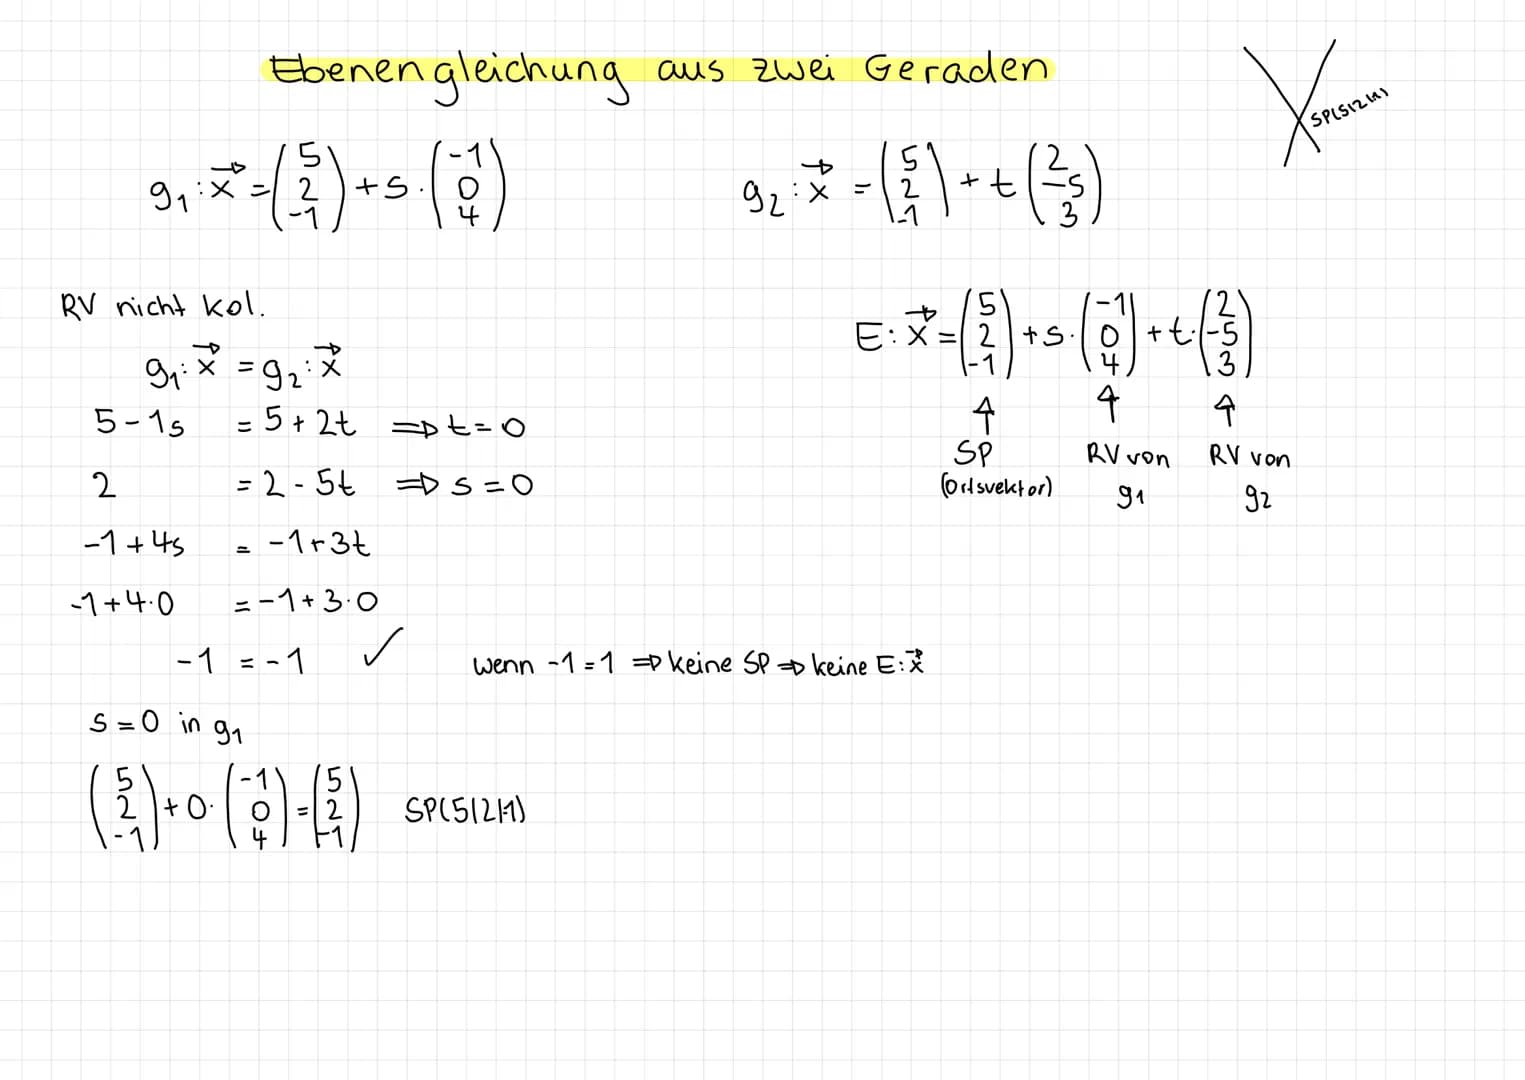 Ebenengleichung aus zwei Geraden
SP(5|2|-1)
g₁: x⃗ = (5 2 -1) + s · (-1 0 4)
g₂: x⃗ = (5 2 -1) + t (2 -5 3)
RV nicht kol.
g₁: x⃗ = g₂: x⃗
5 - 1s = 5 + 2t ⇒ t = 0
2 = 2 - 5t ⇒ s = 0
-1 + 4s = -1 + 3t
-1 + 4·0 = -1 + 3·0
-1 = -1 ✓
wenn -1 = 1 ⇒ keine SP ⇒ keine E: x⃗
s = 0 in g₁
(5 2 -1) + 0 · (-1 0 4) = (5 2 -1) SP(5|2|-1)
E: x⃗ = (5 2 -1) + s · (-1 0 4) + t · (2 -5 3)
↑ ↑ ↑
SP RV von RV von
(Ortsvektor) g₁ g₂